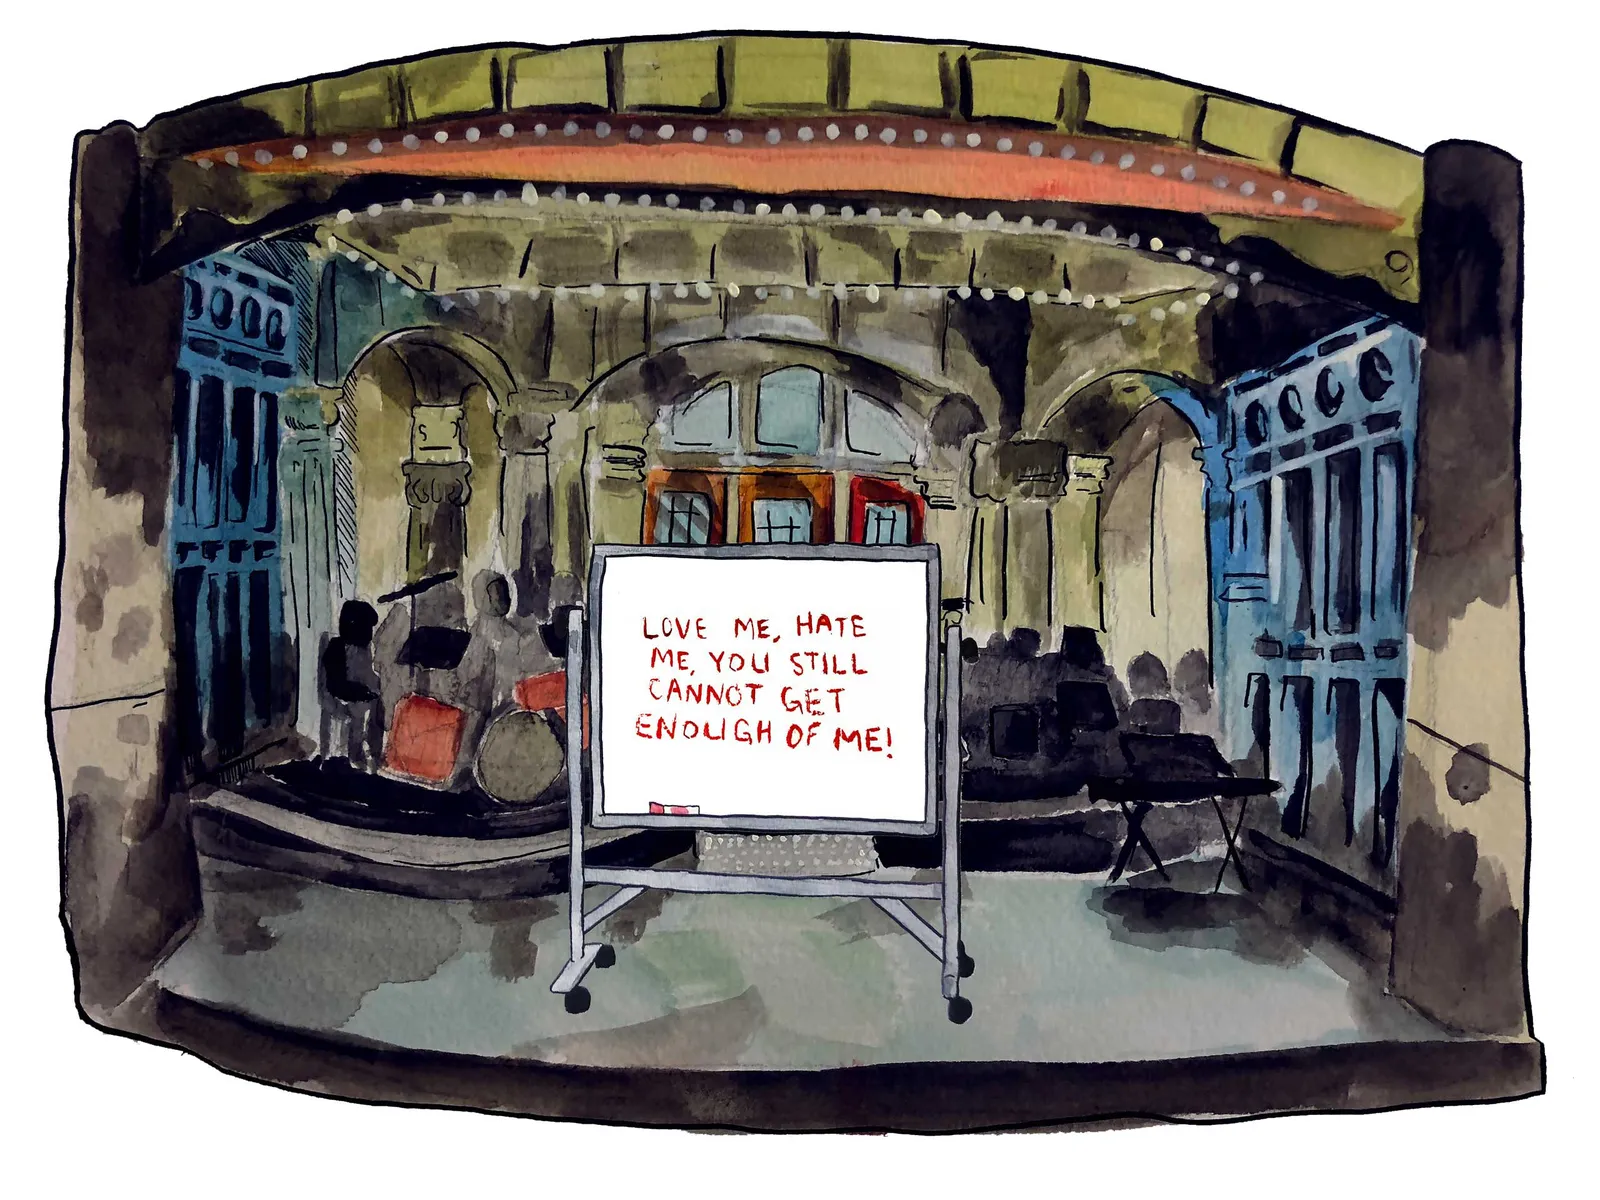 LOVE ME, HATE
ME, YOU STILL
CANNOT GET
ENOUGH OF ME!